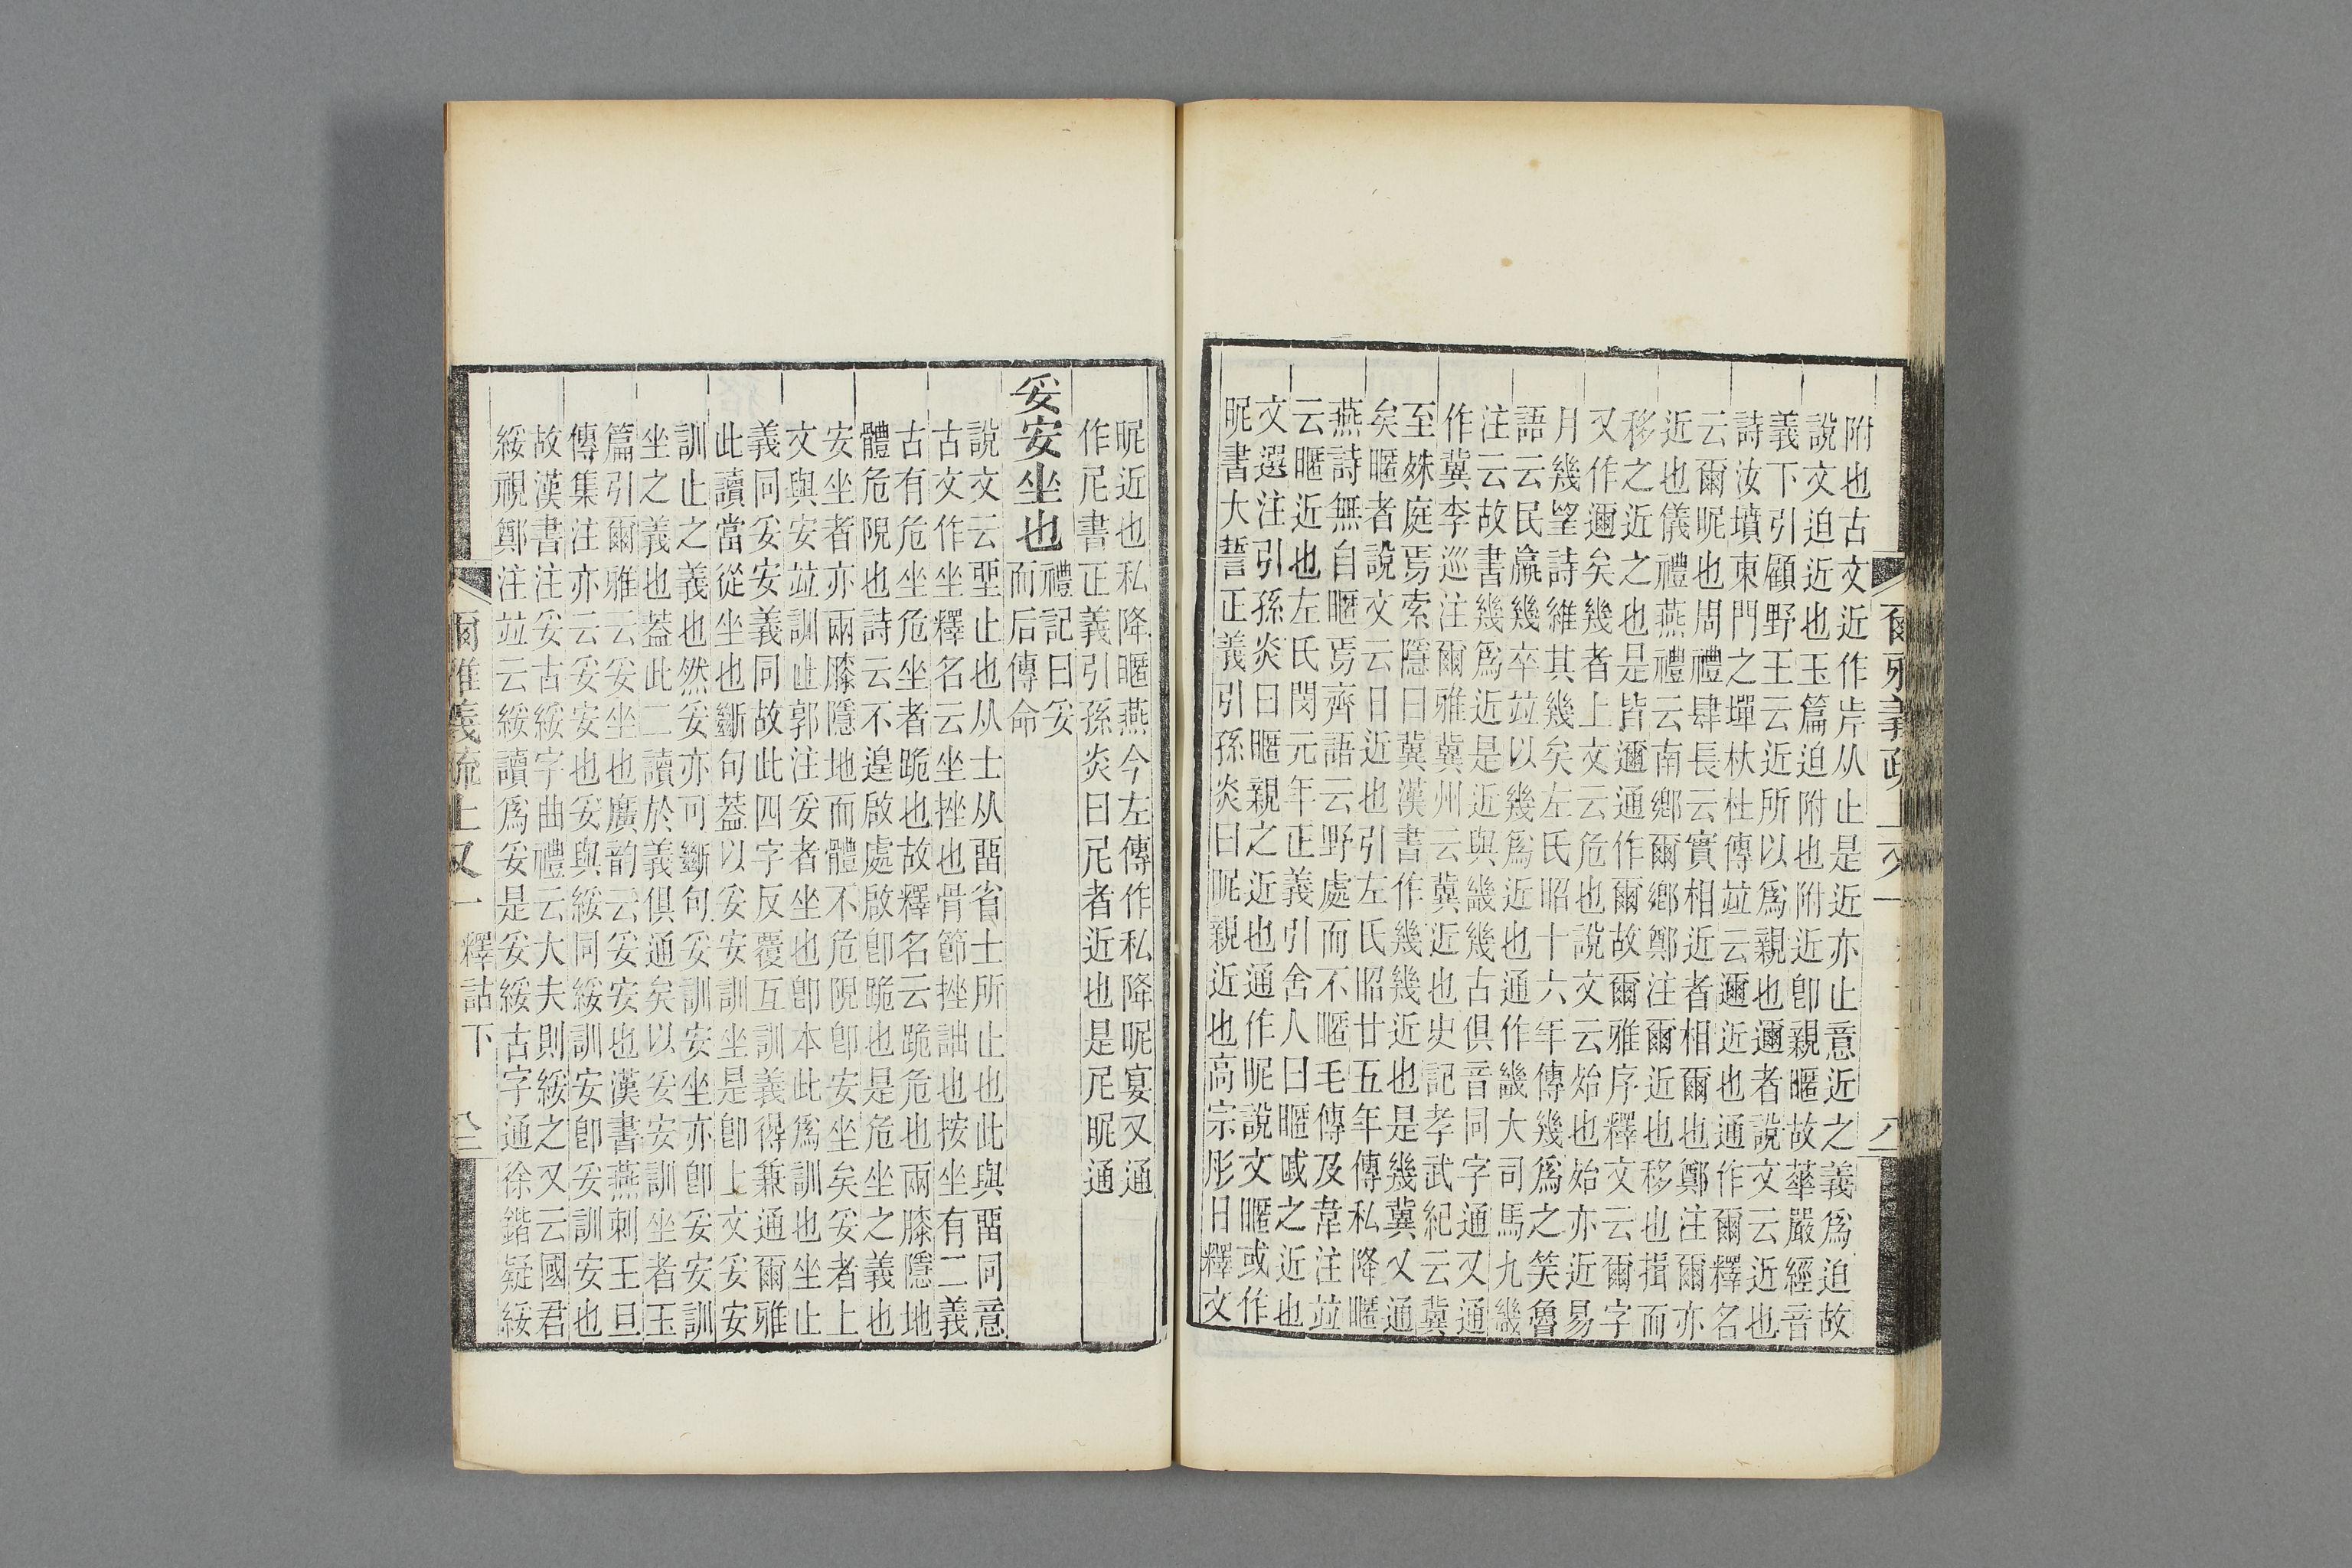 附也古文近作岸从止是近亦止意近之義爲迫故
說文迫近也玉篇迫附也附近卽親暱故華嚴經音
義下引顧野王云近所以爲親也邇者說文云近也
詩汝墳東門之墠杕杜傳竝云邇近也通作爾釋名
云爾昵也周禮肆長云實相近者相爾也鄭注爾亦
近也儀禮燕禮云南鄉爾鄉鄭注爾近也移也揖而
移之近之也是皆邇通作爾故爾雅序釋文云爾字
又作邇矣幾者上文云危也說文云始也始亦近易
月幾望詩維其幾矣左氏昭十六年傳幾爲之笑魯
語云民羸幾卒竝以幾爲近也通作畿大司馬九畿
注云故書幾爲近是近與畿幾古俱音同字通又通
作冀李巡注爾雅冀州云冀近也史記孝武紀云冀
至殊庭焉索隱曰冀漢書作幾幾近也是幾冀又通
矣暱者說文云日近也引左氏昭廿五年傳私降暱
燕詩無自暱焉齊語云野處而不暱毛傳及韋注竝
云暱近也左氏閔元年正義引舍人曰暱戚之近也
文選注引孫炎曰暱親之近也通作昵說文暱或作
昵書大誓正義引孫炎曰昵親近也高宗肜日釋文
爾雅義疏上又一
八
昵近也私降暱燕今左傳作私降昵宴又通
作尼書正義引孫炎曰尼者近也是尼昵通
妥安坐也
禮記曰妥
而后傳命
說文云堊止也从土从畱省土所止也此與畱同意
古文作坐釋名云坐挫也骨節挫詘也按坐有二義
古有危坐危坐者跪也故釋名云跪危也兩膝隱地
體危隉也詩云不遑啟處啟卽跪也是危坐之義也
安坐者亦兩膝隱地而體不危隉卽安坐矣妥者上
文與安竝訓止郭注妥者坐也卽本此爲訓也坐止
義同妥安義同故此四字反覆互訓義得兼通爾雅
此讀當從坐也斷句葢以妥安訓坐是卽上文妥安
訓止之義也然妥亦可斷句妥訓安坐亦卽妥安訓
坐之義也葢此二讀於義俱通矣以妥安訓坐者玉
篇引爾雅云妥坐也廣韵云妥安也漢書燕刺王旦
傳集注亦云妥安也妥與綏同綏訓安卽妥訓安也
故漢書注妥古綏字曲禮云大夫則綏之又云國君
綏視鄭注竝云綏讀爲妥是妥綏古字通徐鍇疑綏
爾雅義疏上又一 釋詁下 八二